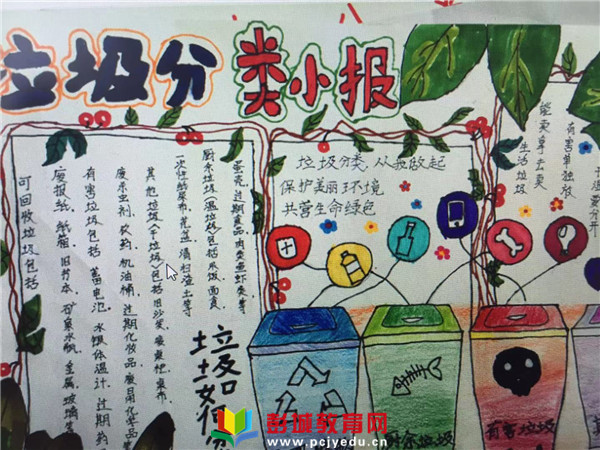 垃圾分类小报
可回收垃圾包括
废报纸、纸箱、旧书本、矿泉水瓶、金属、玻璃等
有害垃圾包括 蓄电池、水银体温计、过期药
废杀虫剂、软药、机油桶、过期化妆品、废日用化学品
其他垃圾(干垃圾)包括旧沙发、废桌
一次性纸尿布、花盆、清扫渣土等
厨余垃圾(湿垃圾)包括米饭、面食
蛋壳、过期食品、肉类鱼虾类等
垃圾分类,从我做起
保护美丽环境
共营生命绿色
能卖拿去卖
有害单独放
生活垃圾
干湿要分开
厨余垃圾
有害垃圾
其
彭城教育网
www.pcjyedu.cn